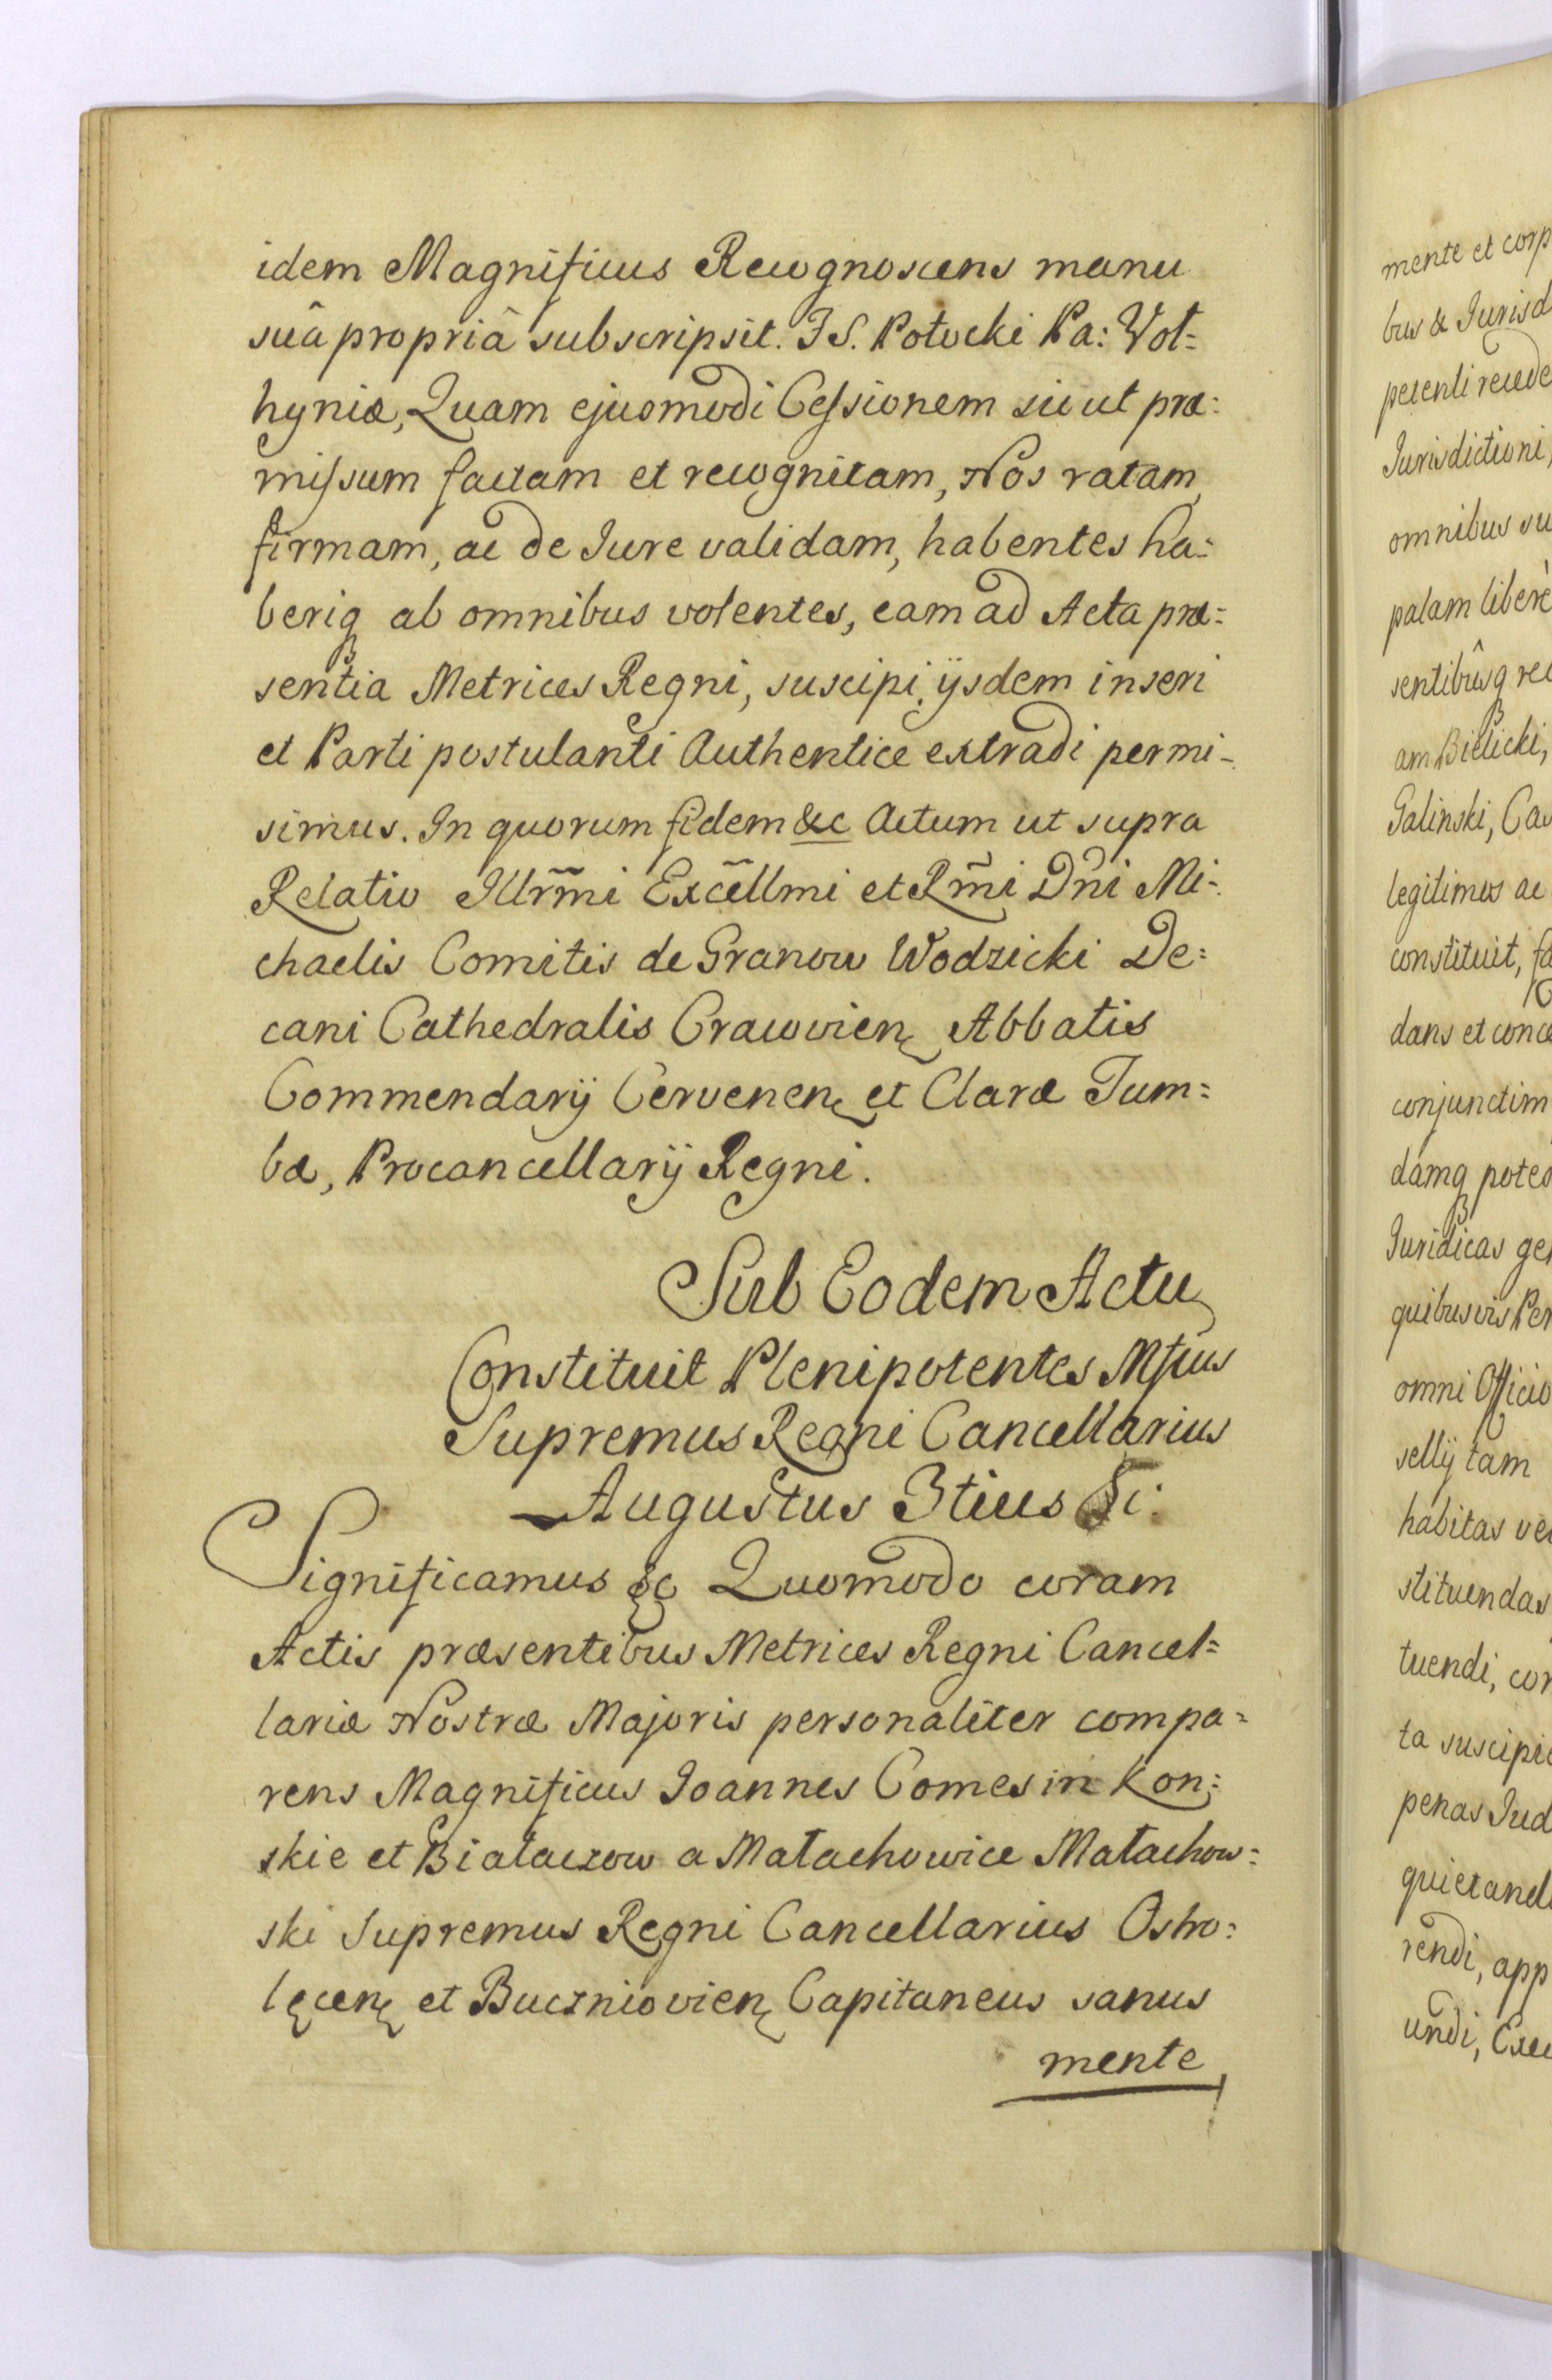 idem Magnificus Recognoscens manu
suâ propriâ subscripsit. JS. Potocki Pa: Woł=
hyniæ, Quam ejusmodi Cessionem sicut præ=
missum factam et recognitam, Nos ratam,
firmam, ac de Jure validam, habentes ha=
beriq ab omnibus volentes, eam ad Acta præ=
sentia Metrices Regni, suscipi, ijsdem inseri
et Parti postulanti Authentice extradi permi-
simus. In quorum fidem &c Actum ut supra
Relatio Illrm̃i Excẽllmi et Rm̃i Dñi Mi-
chaelis Comitis de Granow Wodzicki De=
cani Cathedralis Cracovien Abbatis
Commendarij Cervenen et Claræ Tum=
bæ, Procancellarij Regni.
Sub Eodem Actu
Constituit Plenipotentes Mfcus
Supremus Regni Cancellarius
Augustus 3tius &c:
Significamus &c Quomodo coram
Actis præsentibus Metrices Regni Cancel=
lariæ Nostræ Majoris personaliter compa=
rens Magnificus Joannes Comes in Kon=
skie et Białaczow a Małachowice Małachow=
ski Supremus Regni Cancellarius Ostro=
lęcen et Buczniovien Capitaneus sanus
mente
mente et corp
bus & Jurisd
petenti recede
Jurisdictioni,
omnibus su
palam liberè
sentibûsq rec
am Bielicki,
Galinski, Cas
legitimos ac
constituit, fa
dans et conce
conjunctim
damq potes
Juridicas ger
quibusvis Per
omni Officio
sellij tam
habitas ve
stituendas
tuendi, con
ta suscipie
penas Jud
quietand
rendi, app
undi, Exe